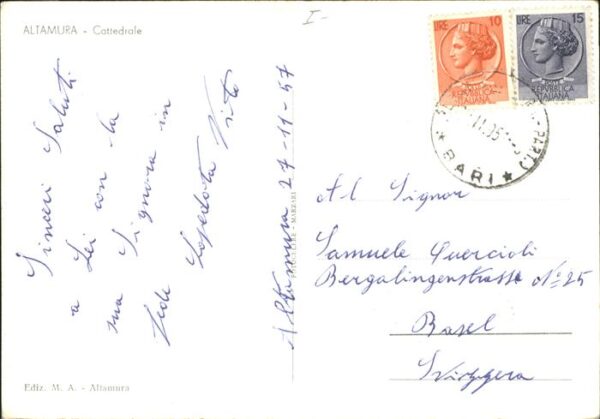 ALTAMURA - Cattedrale
I-
LIRE 10
REPUBBLICA
ITALIANA
LIRE 15
POSTE
REPUBBLICA
ITALIANA
BARI
Sinceri Saluti
a Lei con la
sua Signora in
fede
Vito
Altamura 27-11-57
Al Signor
Samuele Quercioli
Bergalingenstrasse No 25
Basel
Svizzera
Ediz. M. A. - Altamura